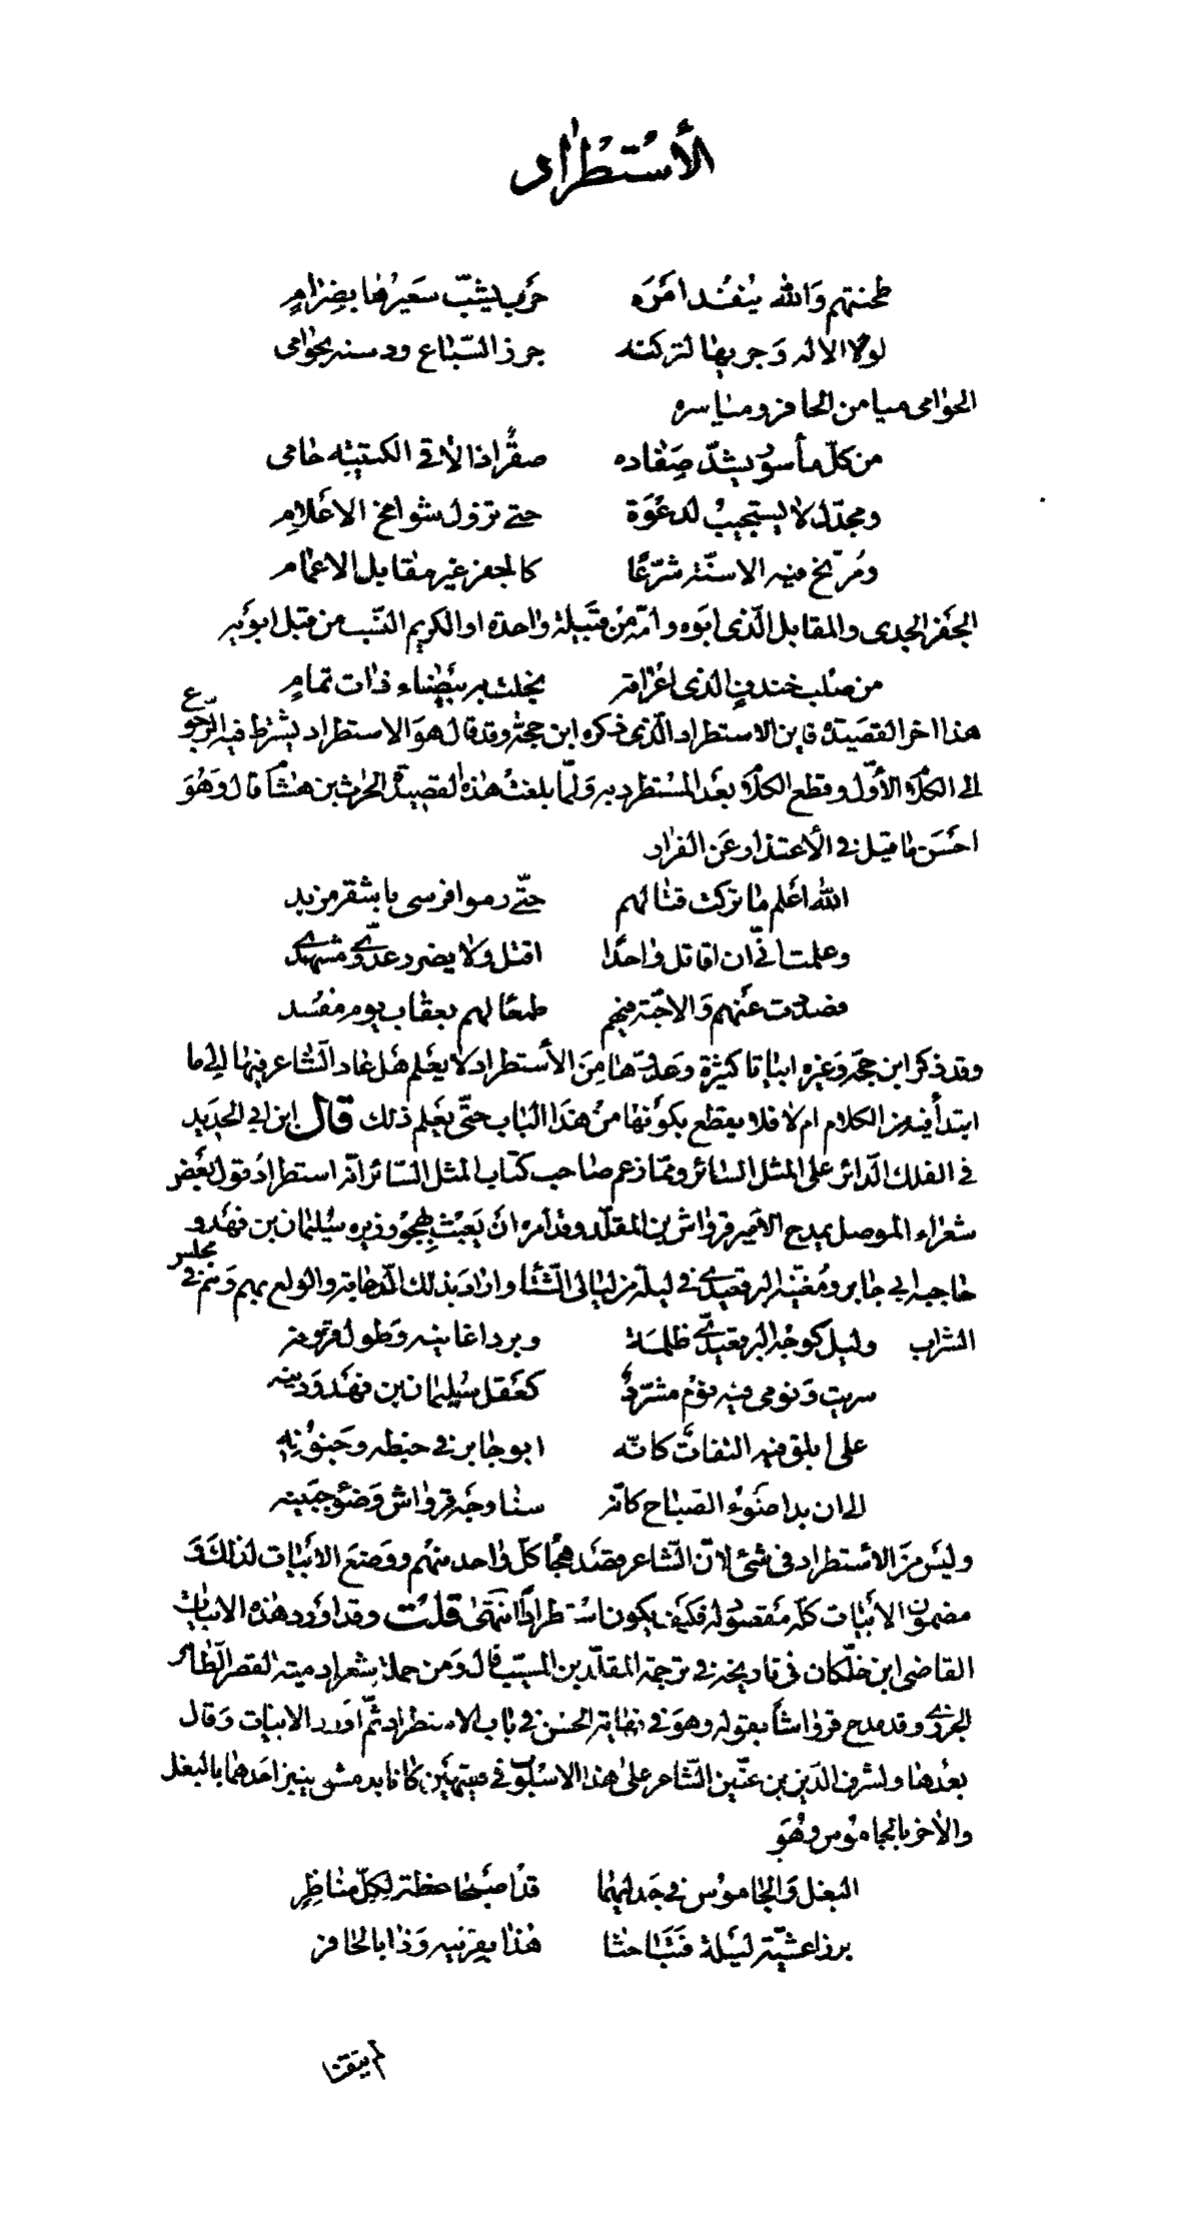 الأسْتطْراد
طحنتهم وَالله ينفُذ امَره حَرب يشبّ سعَيرُها بضِرامٍ
لولا الاله وَجريها لتركنه جزر السّباع ودسنه بحوامى
الحوامى ميامن الحافر ومياسره
من كلّ مأسورٍ يشدّ صِفاده صقرٌ اذا لاقى الكتيبة حامى
ومجدّل لا يستجيبُ لدعْوَة حتى تزول شوامخ الاعَلامِ
ومُرّنخ فيه الاسنّة شرّعًا كالجفر غير مقابل الاعمام
الجَفر الجدى والمقابل الّذى ابَوه وامّه مِنْ قبَيلة واحدة او الكريم النّسب من قبل ابوَيه
من صُلب خندفٍ الذى اعْراقه نجلت به بيَضاء ذات تمامٍ
هذا اخر القصَيدة فاين الاستطراد الّذى ذكره ابن حجة وقد قال هوَ الاستطراد يشْترط فيه الرّجوع
الى الكلام الأوّل وقطع الكلام بعَد المسْتطرد به وَلمّا بلغتْ هٰذه القصيدة الحٰرث بن هشام قال وَهُوَ
احسَن ما قيل فى الأعتذار عَن الفرار
الله اعَلم ما تركت قتالهم حتّى رموا فرسى باشقر مزبد
وعلمت انّى ان اقاتل واحدًا اقتل ولا يضرر عدّوى مشهدى
فصددت عَنهم وَالاحبّة فيهم طمعًا لهم بعقاب يوم مفسد
وقد ذكر ابن حجّة وَغيره ابياتا كثيرة وَعدّها مِنَ الأستطراد لا يعَلم هَل عاد الشّاعر فيها الى ما
ابتدأ فيه من الكلام ام لا فلا يقطع بكوَنها منْ هذَا الباب حتّى يعَلم ذلك قال ابن ابى الحَديد
فى الفلك الدّائر على المثل السّائر وممّا زعم صاحب كتاب المثل السّائر انّه استطرادُ قول بعَض
شعراء الموصل يمدح الأمير قرواش بن المقلّد وقد امره انْ يَعبث بهجْو وزيره سُليمان بن فهَد و
حاجبه ابى جابر ومُغنّيه البرقعيدى فى ليلة من ليالى الشّتاء وارادَ بذلك الدّعابة والولع بهم وَهم فى مجلس
الشراب وليل كوجْه البرقعيدىّ ظلمَة وبرد اغانيه وَطول قرونه
سريت وَنومى فيه نوْم مشرّدٌ كعَقل سُليمان بن فهَد وَدينه
على ابلق فيه التفاتٌ كانّه ابو جابر فى خبطه وجَنونهِ
الى ان بدا ضَوْء الصّباح كانّه سنا وجَه قرواش وَضوْء جبَينه
وليسَ مِنَ الأسْتطراد فى شئ لانّ الشّاعر قصَد هجا كلّ واحد منهُم ووَضَعَ الابَيات لذلك وَ
مضمون الأبَيات كلّه مَقصود له فكيَف يكون استطرادًا انتَهىٰ قلتُ وقد اوَرد هذه الابيات
القاضى ابن خلّكان فى تاريخه فى ترجمة المقلّد بن المسيّب قال وَمن جملة شعراء دمية القصر الطاهر
الجزرى وقد مدح قرواشًا بقوله وهوَ فى نهاية الحسن فى باب الاستطراد ثمّ اوَرد الابيات وَقال
بعْدها ولشرف الدّين بن عنّين الشّاعر على هذا الاسْلوب فى فقيهَين كانا بدمشق ينبز احَدهما بالبغل
والأخر بالجاموس وهُوَ
البَغل وَالجاموُس فى جَدليهمْا قدْ اصَبحا عظة لكلّ مناظرٍ
برزا عشيّة ليَلة فتَباحثا هٰذا بقرنيه وَذا بالحافر
لم يتقنا